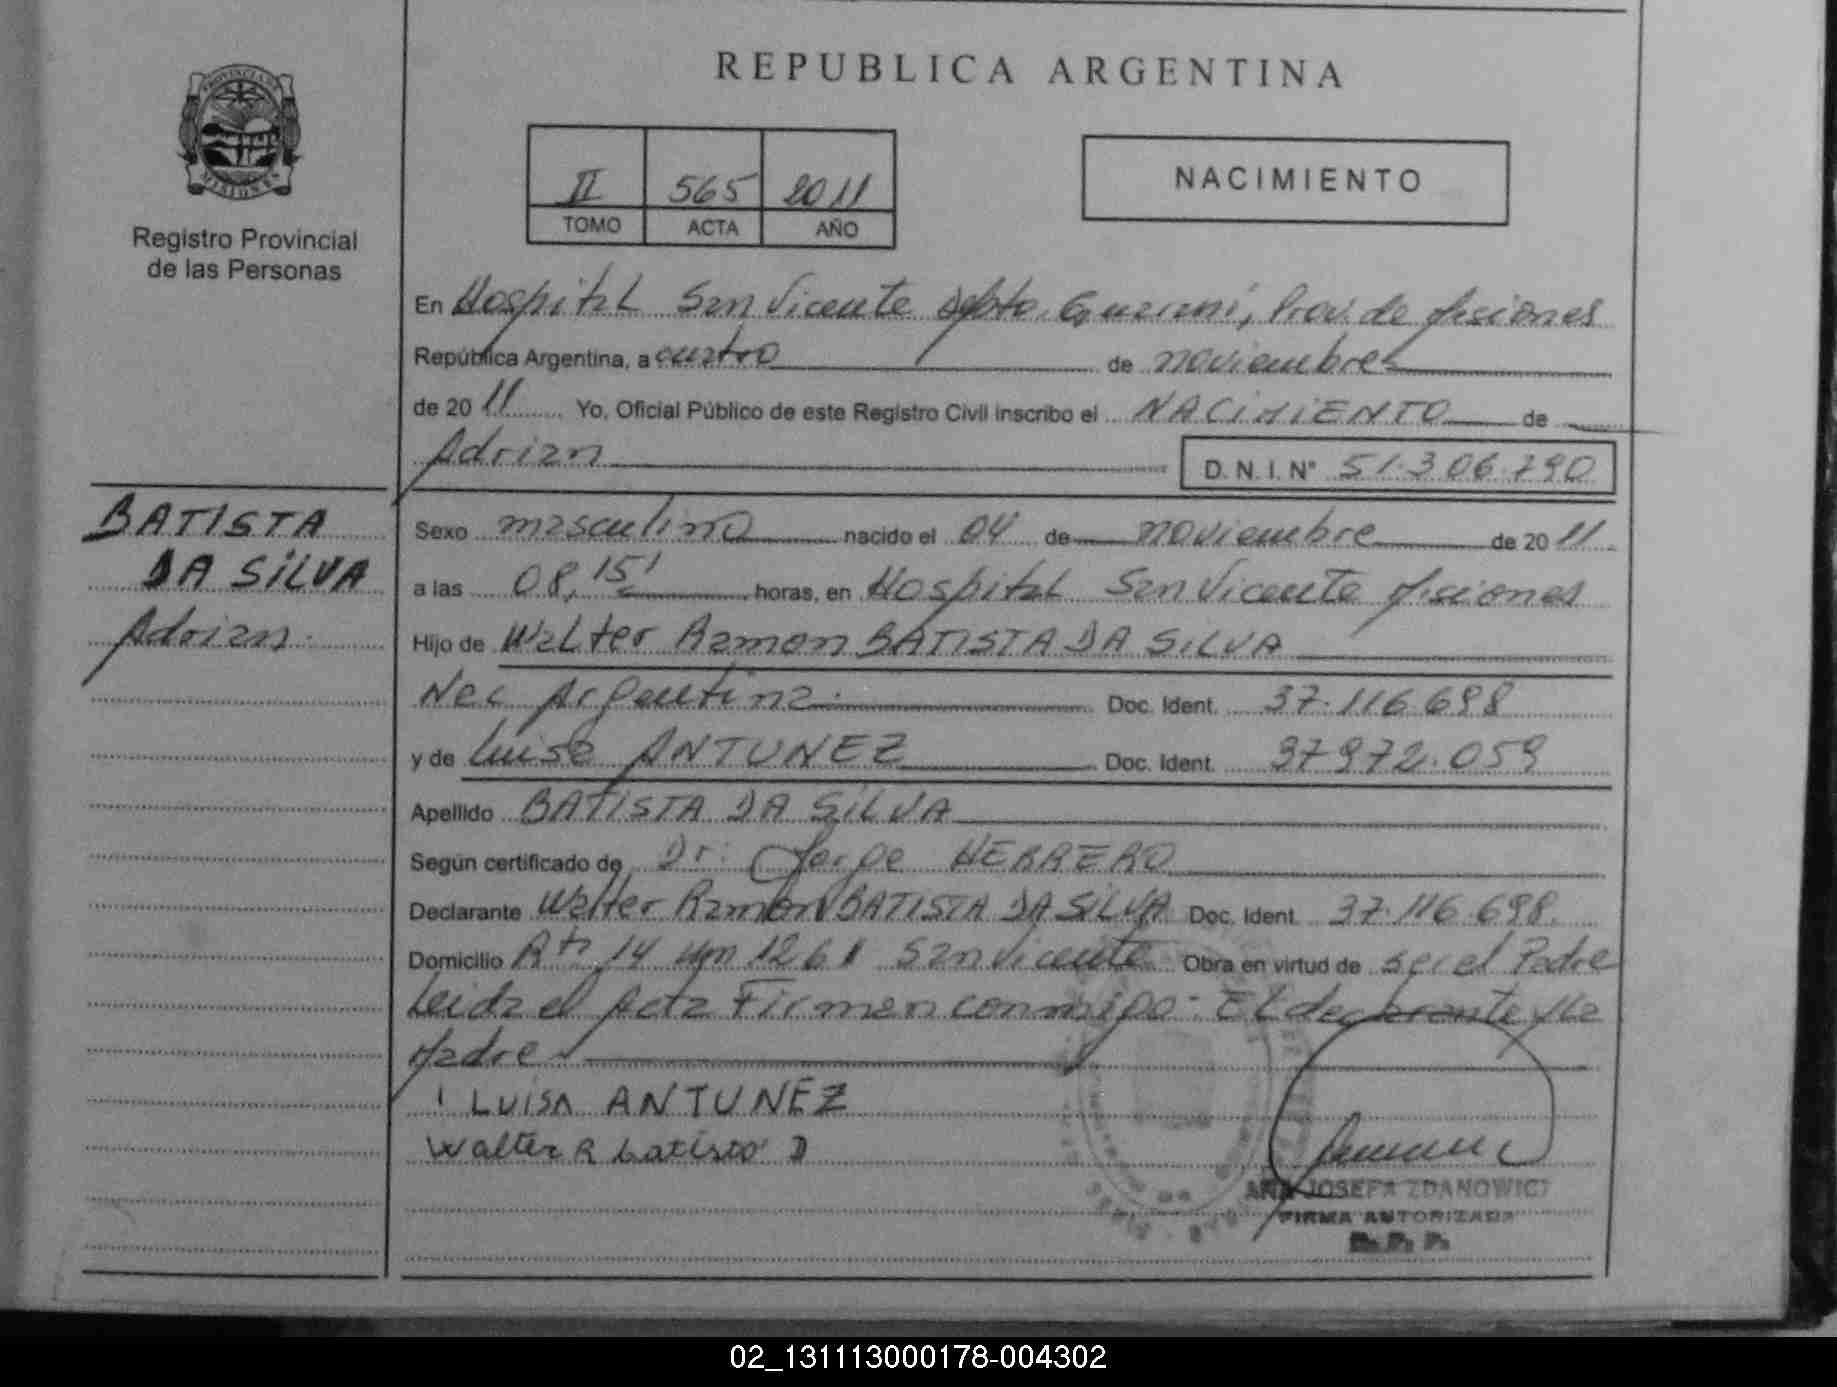 PROVINCIA DE
MISIONES
Registro Provincial
de las Personas
BATISTA
DA SILVA
Adrian.
REPUBLICA ARGENTINA
II 565 2011
TOMO ACTA AÑO
NACIMIENTO
En Hospital San Vicente Dpto. Guarani, Prov. de Misiones
República Argentina, a cuatro de noviembre
de 20 11 Yo, Oficial Público de este Registro Civil inscribo el NACIMIENTO de
Adrian D.N.I. Nº 51.306.790
Sexo masculino nacido el 04 de noviembre de 20 11
a las 08,15' horas, en Hospital San Vicente Misiones
Hijo de Walter Ramon BATISTA DA SILVA
Nac Argentina. Doc. Ident. 37.116.698
y de Luisa ANTUNEZ Doc. Ident. 37972.059
Apellido BATISTA DA SILVA
Según certificado de Dr. Jorge HERRERO
Declarante Walter Ramon BATISTA DA SILVA Doc. Ident. 37.116.698.
Domicilio Rta 14 km 1261 San Vicente Obra en virtud de ser el Padre
Leida el Acta Firman conmigo: El declarante y la
Madre
LUISA ANTUNEZ
Walter R batista D
ANA JOSEFA ZDANOWICZ
FIRMA AUTORIZADA
R. P. P.
02_131113000178-004302